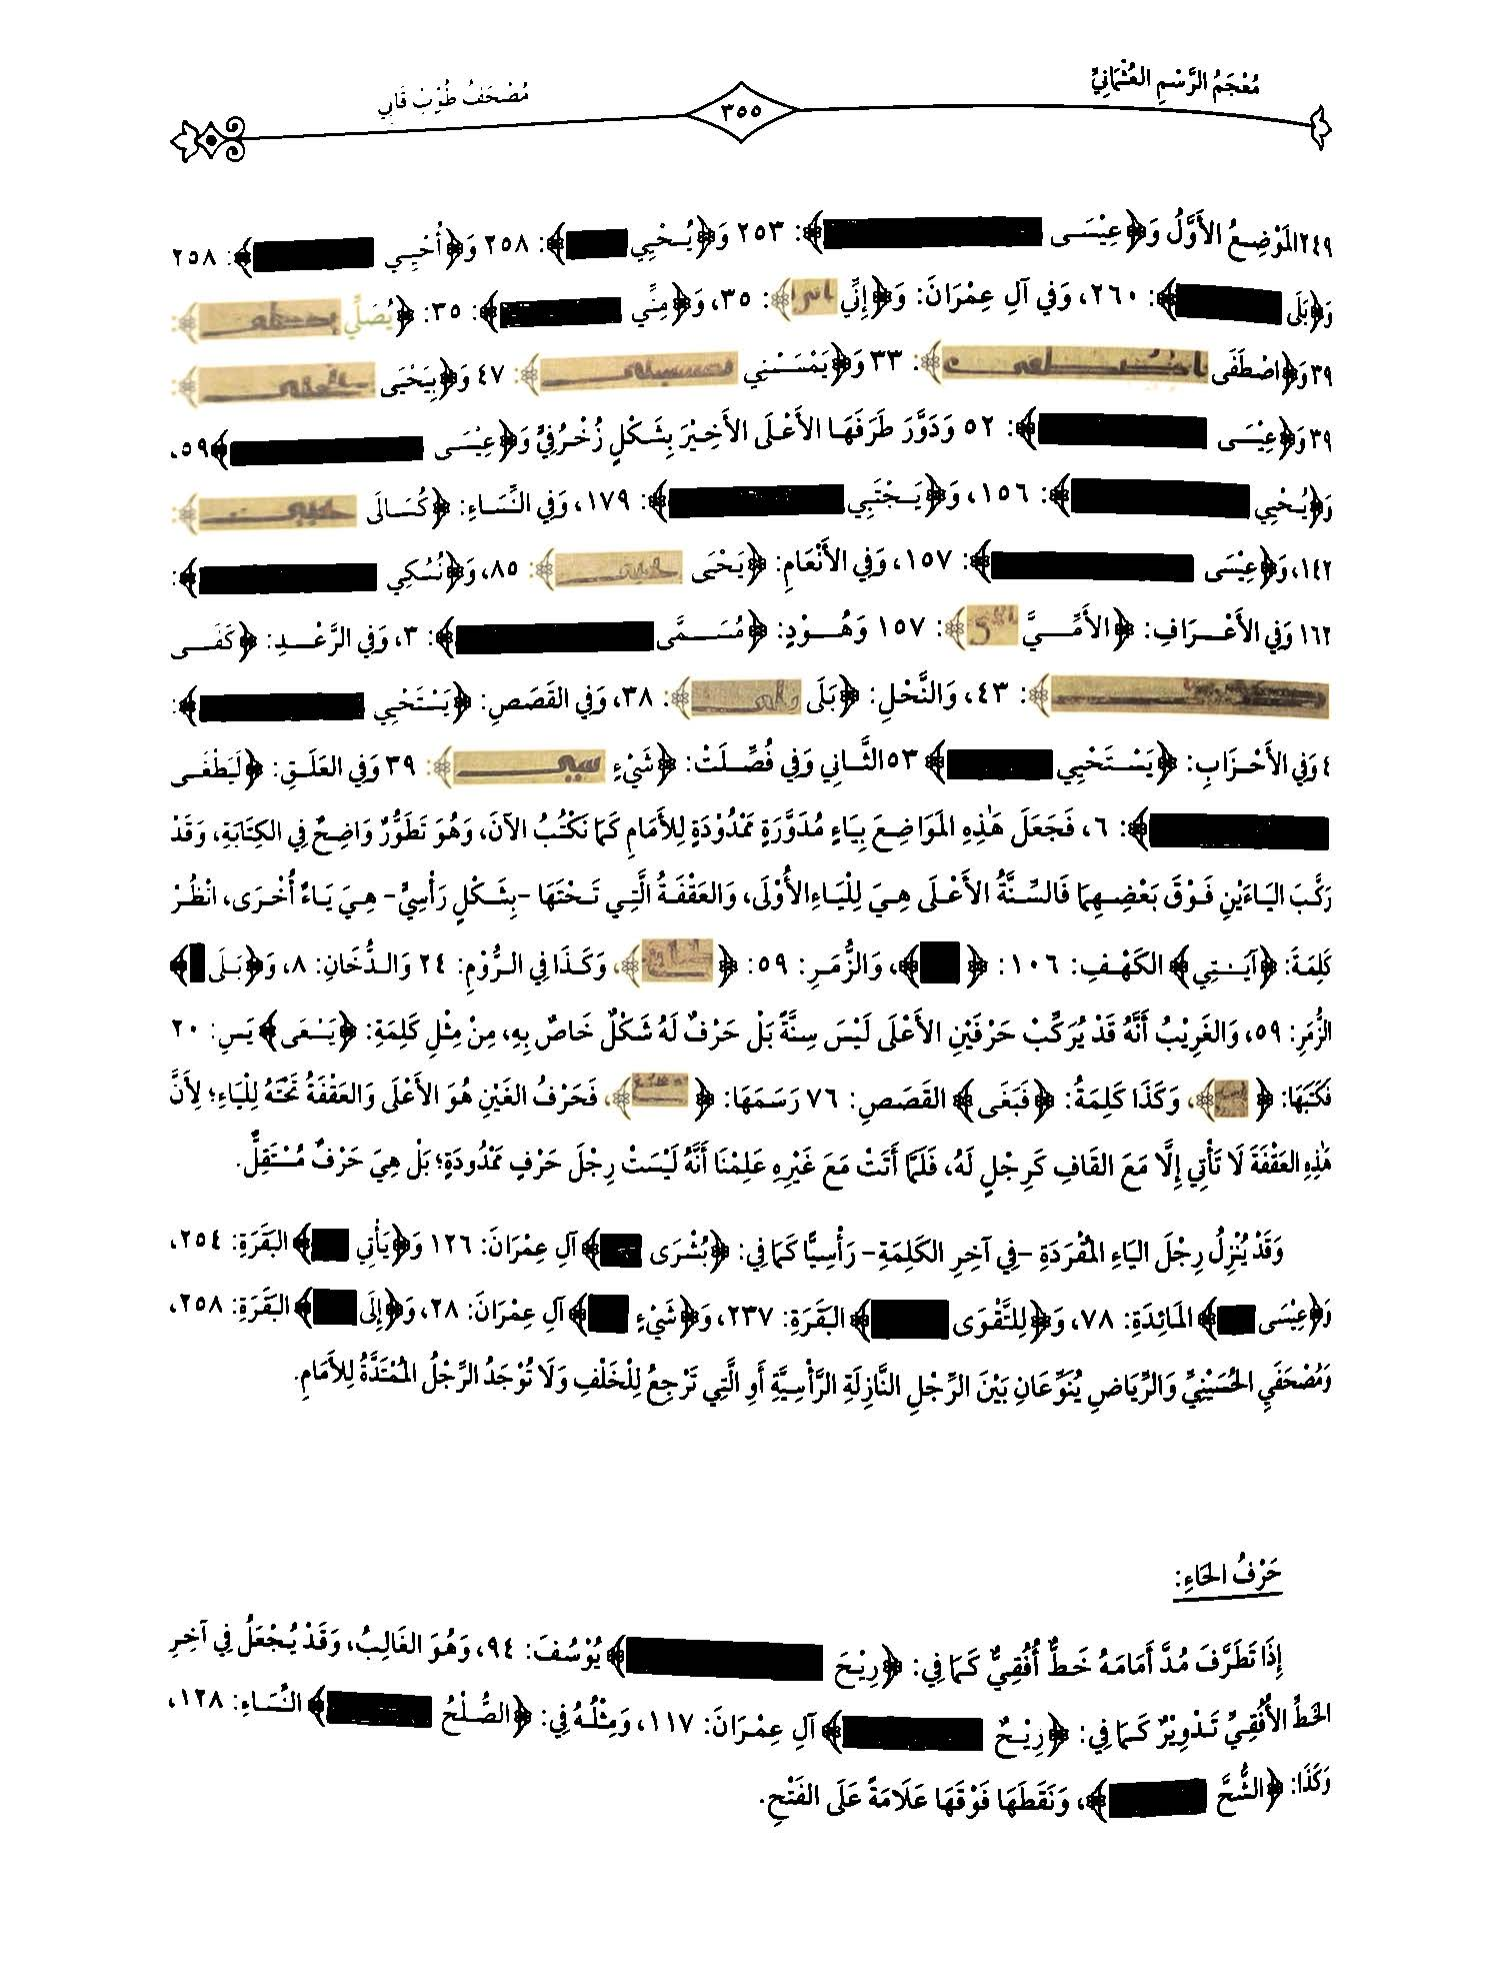 مُعْجَمُ الرَّسْمِ العُثْمَانِيِّ
٣٥٥
مُصْحَفُ طُوْبْ قَابِي
٢٤٩المَوْضِعُ الأَوَّلُ وَ﴿عِيْسَى ﴾: ٢٥٣ وَ﴿يُحْيِي ﴾: ٢٥٨ وَ﴿أُحْيِي ﴾: ٢٥٨
وَ﴿بَلَى ﴾: ٢٦٠، وَفِي آلِ عِمْرَانَ: وَ﴿إِنِّي ﴾: ٣٥، وَ﴿مِنِّي ﴾: ٣٥: ﴿يُصَلِّي ﴾:
٣٩ وَ﴿اصْطَفَى ﴾: ٣٣ وَ﴿يَمْسَسْنِي ﴾: ٤٧ وَ﴿بِيَحْيَى ﴾:
٣٩ وَ﴿عِيْسَى ﴾: ٥٢ وَدَوَّرَ طَرَفَهَا الأَعْلَى الأَخِيْرَ بِشَكْلٍ زُخْرُفِيٍّ وَ﴿عِيْسَى ﴾٥٩،
وَ﴿يُحْيِي ﴾: ١٥٦، وَ﴿يَجْتَبِي ﴾: ١٧٩، وَفِي النِّسَاءِ: ﴿كُسَالَى ﴾:
١٤٢، وَ﴿عِيْسَى ﴾: ١٥٧، وَفِي الأَنْعَامِ: ﴿يَحْيَى ﴾: ٨٥، وَ﴿نُسُكِي ﴾:
١٦٢ وَفِي الأَعْرَافِ: ﴿الأُمِّيَّ ﴾: ١٥٧ وَهُوْدٍ: ﴿مُسَمًّى ﴾: ٣، وَفِي الرَّعْدِ: ﴿كَفَى
﴾: ٤٣، وَالنَّحْلِ: ﴿بَلَى ﴾: ٣٨، وَفِي القَصَصِ: ﴿يَسْتَحْيِي ﴾:
٤ وَفِي الأَحْزَابِ: ﴿يَسْتَحْيِي ﴾ ٥٣الثَّانِي وَفِي فُصِّلَتْ: ﴿شَيْءٍ ﴾: ٣٩ وَفِي العَلَقِ: ﴿لَيَطْغَى
﴾: ٦، فَجَعَلَ هَٰذِهِ المَوَاضِعَ بِيَاءٍ مُدَوَّرَةٍ مَمْدُوْدَةٍ لِلأَمَامِ كَمَا نَكْتُبُ الآنَ، وَهُوَ تَطَوُّرٌ وَاضِحٌ فِي الكِتَابَةِ، وَقَدْ
رَكَّبَ اليَاءَيْنِ فَوْقَ بَعْضِهِمَا فَالسِّنَّةُ الأَعْلَى هِيَ لِلْيَاءِالأُوْلَى، وَالعَقْفَةُ الَّتِي تَحْتَهَا -بِشَكْلٍ رَأْسِيٍّ- هِيَ يَاءٌ أُخْرَى، انْظُرْ
كَلِمَةَ: ﴿آيَـٰتِي﴾ الكَهْفِ: ١٠٦: ﴿ ﴾، وَالزُّمَرِ: ٥٩: ﴿ ﴾، وَكَذَا فِي الرُّوْمِ: ٢٤ وَالدُّخَانِ: ٨، وَ﴿بَلَى ﴾
الزُّمَرِ: ٥٩، وَالغَرِيْبُ أَنَّهُ قَدْ يُرَكِّبُ حَرْفَيْنِ الأَعْلَى لَيْسَ سِنَّةً بَلْ حَرْفٌ لَهُ شَكْلٌ خَاصٌّ بِهِ، مِنْ مِثْلِ كَلِمَةِ: ﴿يَسْعَى﴾ يَس: ٢٠
فَكَتَبَهَا: ﴿ ﴾، وَكَذَا كَلِمَةُ: ﴿فَبَغَى﴾ القَصَصِ: ٧٦ رَسَمَهَا: ﴿ ﴾، فَحَرْفُ الغَيْنِ هُوَ الأَعْلَى وَالعَقْفَةُ تَحْتَهُ لِلْيَاءِ؛ لِأَنَّ
هَٰذِهِ العَقْفَةَ لَا تَأْتِي إِلَّا مَعَ القَافِ كَرِجْلٍ لَهُ، فَلَمَّا أَتَتْ مَعَ غَيْرِهِ عَلِمْنَا أَنَّهُ لَيْسَتْ رِجْلَ حَرْفٍ مَمْدُودَةٍ؛ بَلْ هِيَ حَرْفٌ مُسْتَقِلٌّ.
وَقَدْ يُنْزِلُ رِجْلَ اليَاءِ المُفْرَدَةِ -فِي آخِرِ الكَلِمَةِ- رَأْسِيًّا كَمَا فِي: ﴿بُشْرَى ﴾ آلِ عِمْرَانَ: ١٢٦ وَ﴿يَأْتِي ﴾ البَقَرَةِ: ٢٥٤،
وَ﴿عِيْسَى ﴾ المَائِدَةِ: ٧٨، وَ﴿لِلتَّقْوَى ﴾ البَقَرَةِ: ٢٣٧، وَ﴿شَيْءٍ ﴾ آلِ عِمْرَانَ: ٢٨، وَ﴿إِلَى ﴾ البَقَرَةِ: ٢٥٨،
وَمُصْحَفَيِ الحُسَيْنِيِّ وَالرِّيَاضِ يُنَوِّعَانِ بَيْنَ الرِّجْلِ النَّازِلَةِ الرَّأْسِيَّةِ أَوِ الَّتِي تَرْجِعُ لِلْخَلْفِ وَلَا تُوْجَدُ الرِّجْلُ المُمْتَدَّةُ لِلأَمَامِ.
حَرْفُ الحَاءِ:
إِذَا تَطَرَّفَ مُدَّ أَمَامَهُ خَطٌّ أُفُقِيٌّ كَمَا فِي: ﴿رِيْحَ ﴾ يُوْسُفَ: ٩٤، وَهُوَ الغَالِبُ، وَقَدْ يُجْعَلُ فِي آخِرِ
الخَطِّ الأُفُقِيِّ تَدْوِيْرٌ كَمَا فِي: ﴿رِيْحٌ ﴾ آلِ عِمْرَانَ: ١١٧، وَمِثْلُهُ فِي: ﴿الصُّلْحُ ﴾ النِّسَاءِ: ١٢٨،
وَكَذَا: ﴿الشُّحَّ ﴾، وَنَقَطَهَا فَوْقَهَا عَلَامَةً عَلَى الفَتْحِ.